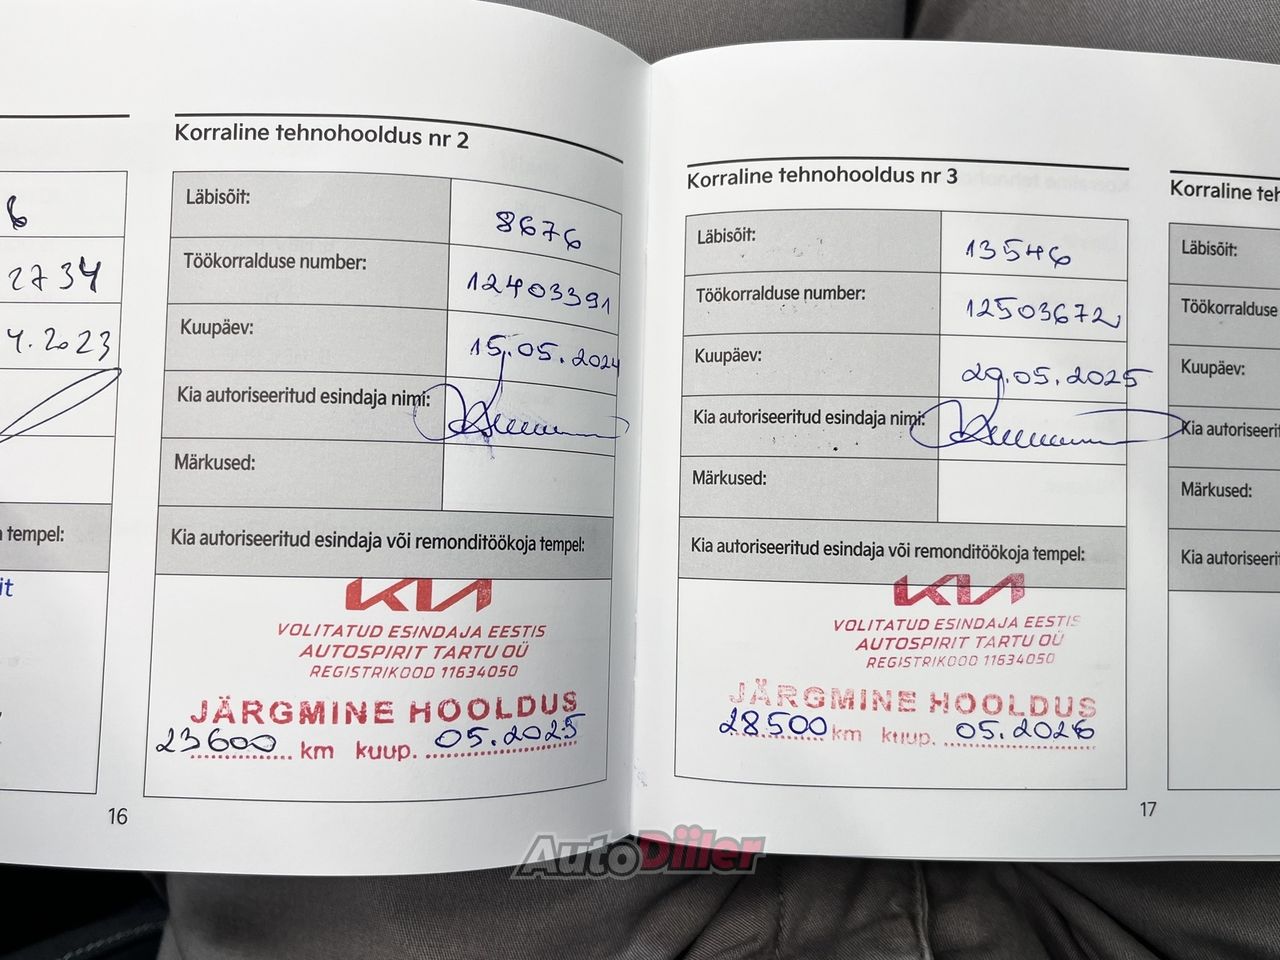 6
2734
4.2023
tempel:
it
16
Korraline tehnohooldus nr 2
Läbisõit: 8676
Töökorralduse number: 12403391
Kuupäev: 15.05.2024
Kia autoriseeritud esindaja nimi:
Märkused:
Kia autoriseeritud esindaja või remonditöökoja tempel:
KIA
VOLITATUD ESINDAJA EESTIS
AUTOSPIRIT TARTU OÜ
REGISTRIKOOD 11634050
JÄRGMINE HOOLDUS
23600 km kuup. 05.2025
Korraline tehnohooldus nr 3
Läbisõit: 13546
Töökorralduse number: 12503672
Kuupäev: 29.05.2025
Kia autoriseeritud esindaja nimi:
Märkused:
Kia autoriseeritud esindaja või remonditöökoja tempel:
KIA
VOLITATUD ESINDAJA EESTIS
AUTOSPIRIT TARTU OÜ
REGISTRIKOOD 11634050
JÄRGMINE HOOLDUS
28500 km kuup. 05.2026
17
Korraline teh
Läbisõit:
Töökorralduse
Kuupäev:
Kia autoriseerit
Märkused:
Kia autoriseerit
AutoDiiler